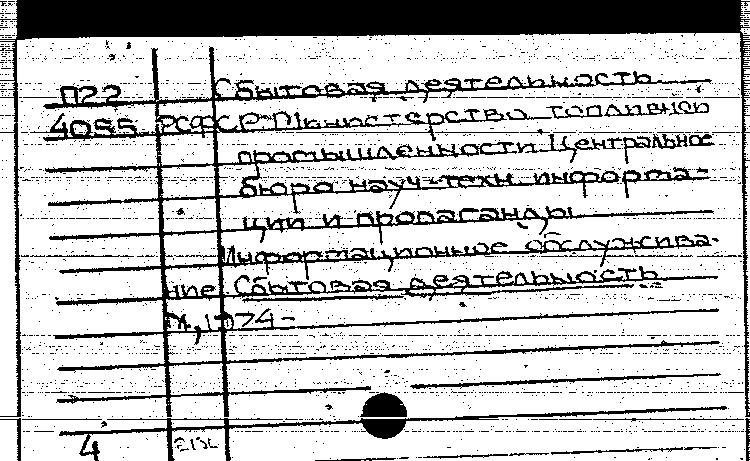 П22 Сбытовая деятельность.
4055 РСФСР. Министерство топливной
промышленности. Центральное
бюро науч-техн. информа-
ции и пропаганды
Информационное обслужива-
ние. Сбытовая деятельность
М, 1974-
4